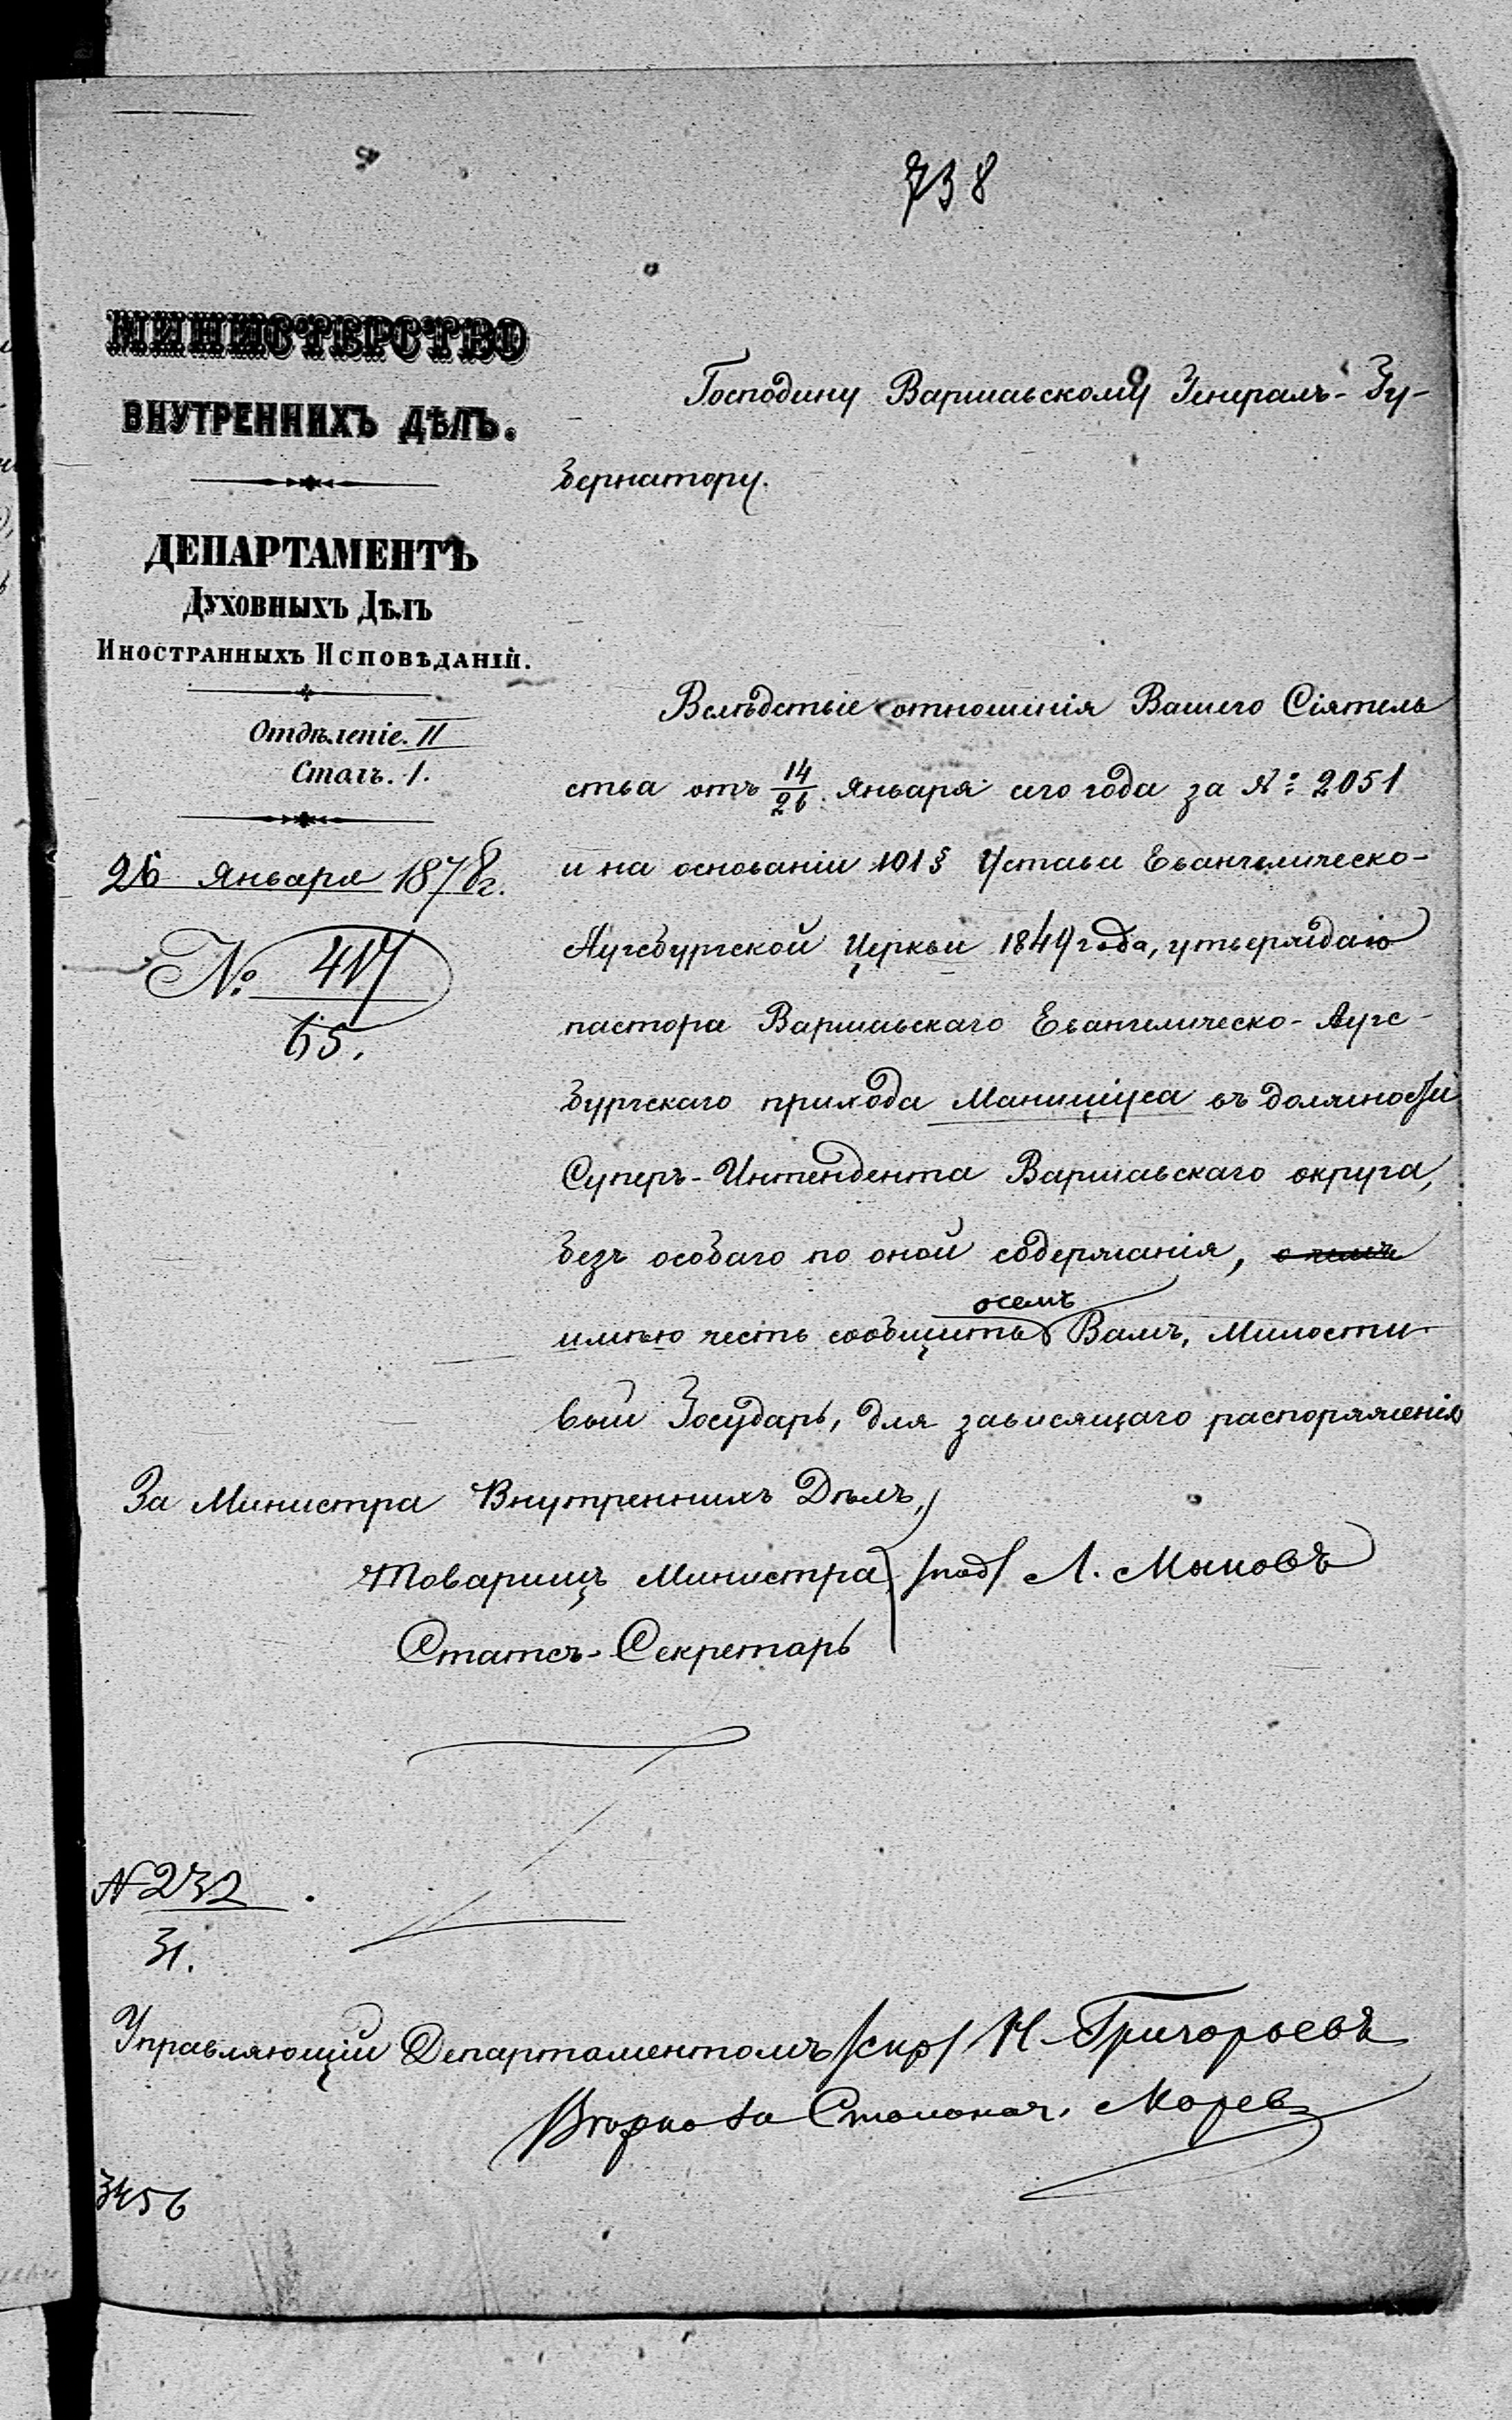 738
МИНИСТЕРСТВО
ВНУТРЕННИХЪ ДѢЛЪ.
ДЕПАРТАМЕНТЪ
ДУХОВНЫХЪ ДѢЛЪ
ИНОСТРАННЫХЪ ИСПОВѢДАНІЙ.
Отдѣленіе. II
Столъ. 1.
26 Января 1878г.
№ 417
65.
Господину Варшавскому Генералъ-Гу-
бернатору.
Вслѣдствіе отношенія Вашего Сіятель
ства отъ 14/26 Января сего года за №: 2051
и на основаніи 101 § Устава Евангелическо-
Аугсбургской Церкви 1849 года, утверждаю
пастора Варшавскаго Евангелическо-Аугс-
бургскаго прихода Маниціуса въ должности
Суперъ-Интендента Варшавскаго округа,
безъ особаго по оной содержанія, о чемъ
осемъ
имѣю честь сообщить Вамъ, Милости
вый Государь, для зависящаго распоряженія
За Министра Внутреннихъ Дѣлъ,
Товарищъ Министра /под/ Л. Маковъ
Статсъ-Секретарь
№ 232
31.
Управляющій Департаментомъ /скр/ Н. Григорьевъ
Вѣрно За Столонач. Морев
3456